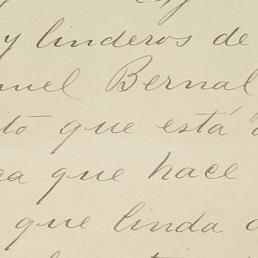 y linderos de
uel Bernal
ito que está
ea que hace
que linda